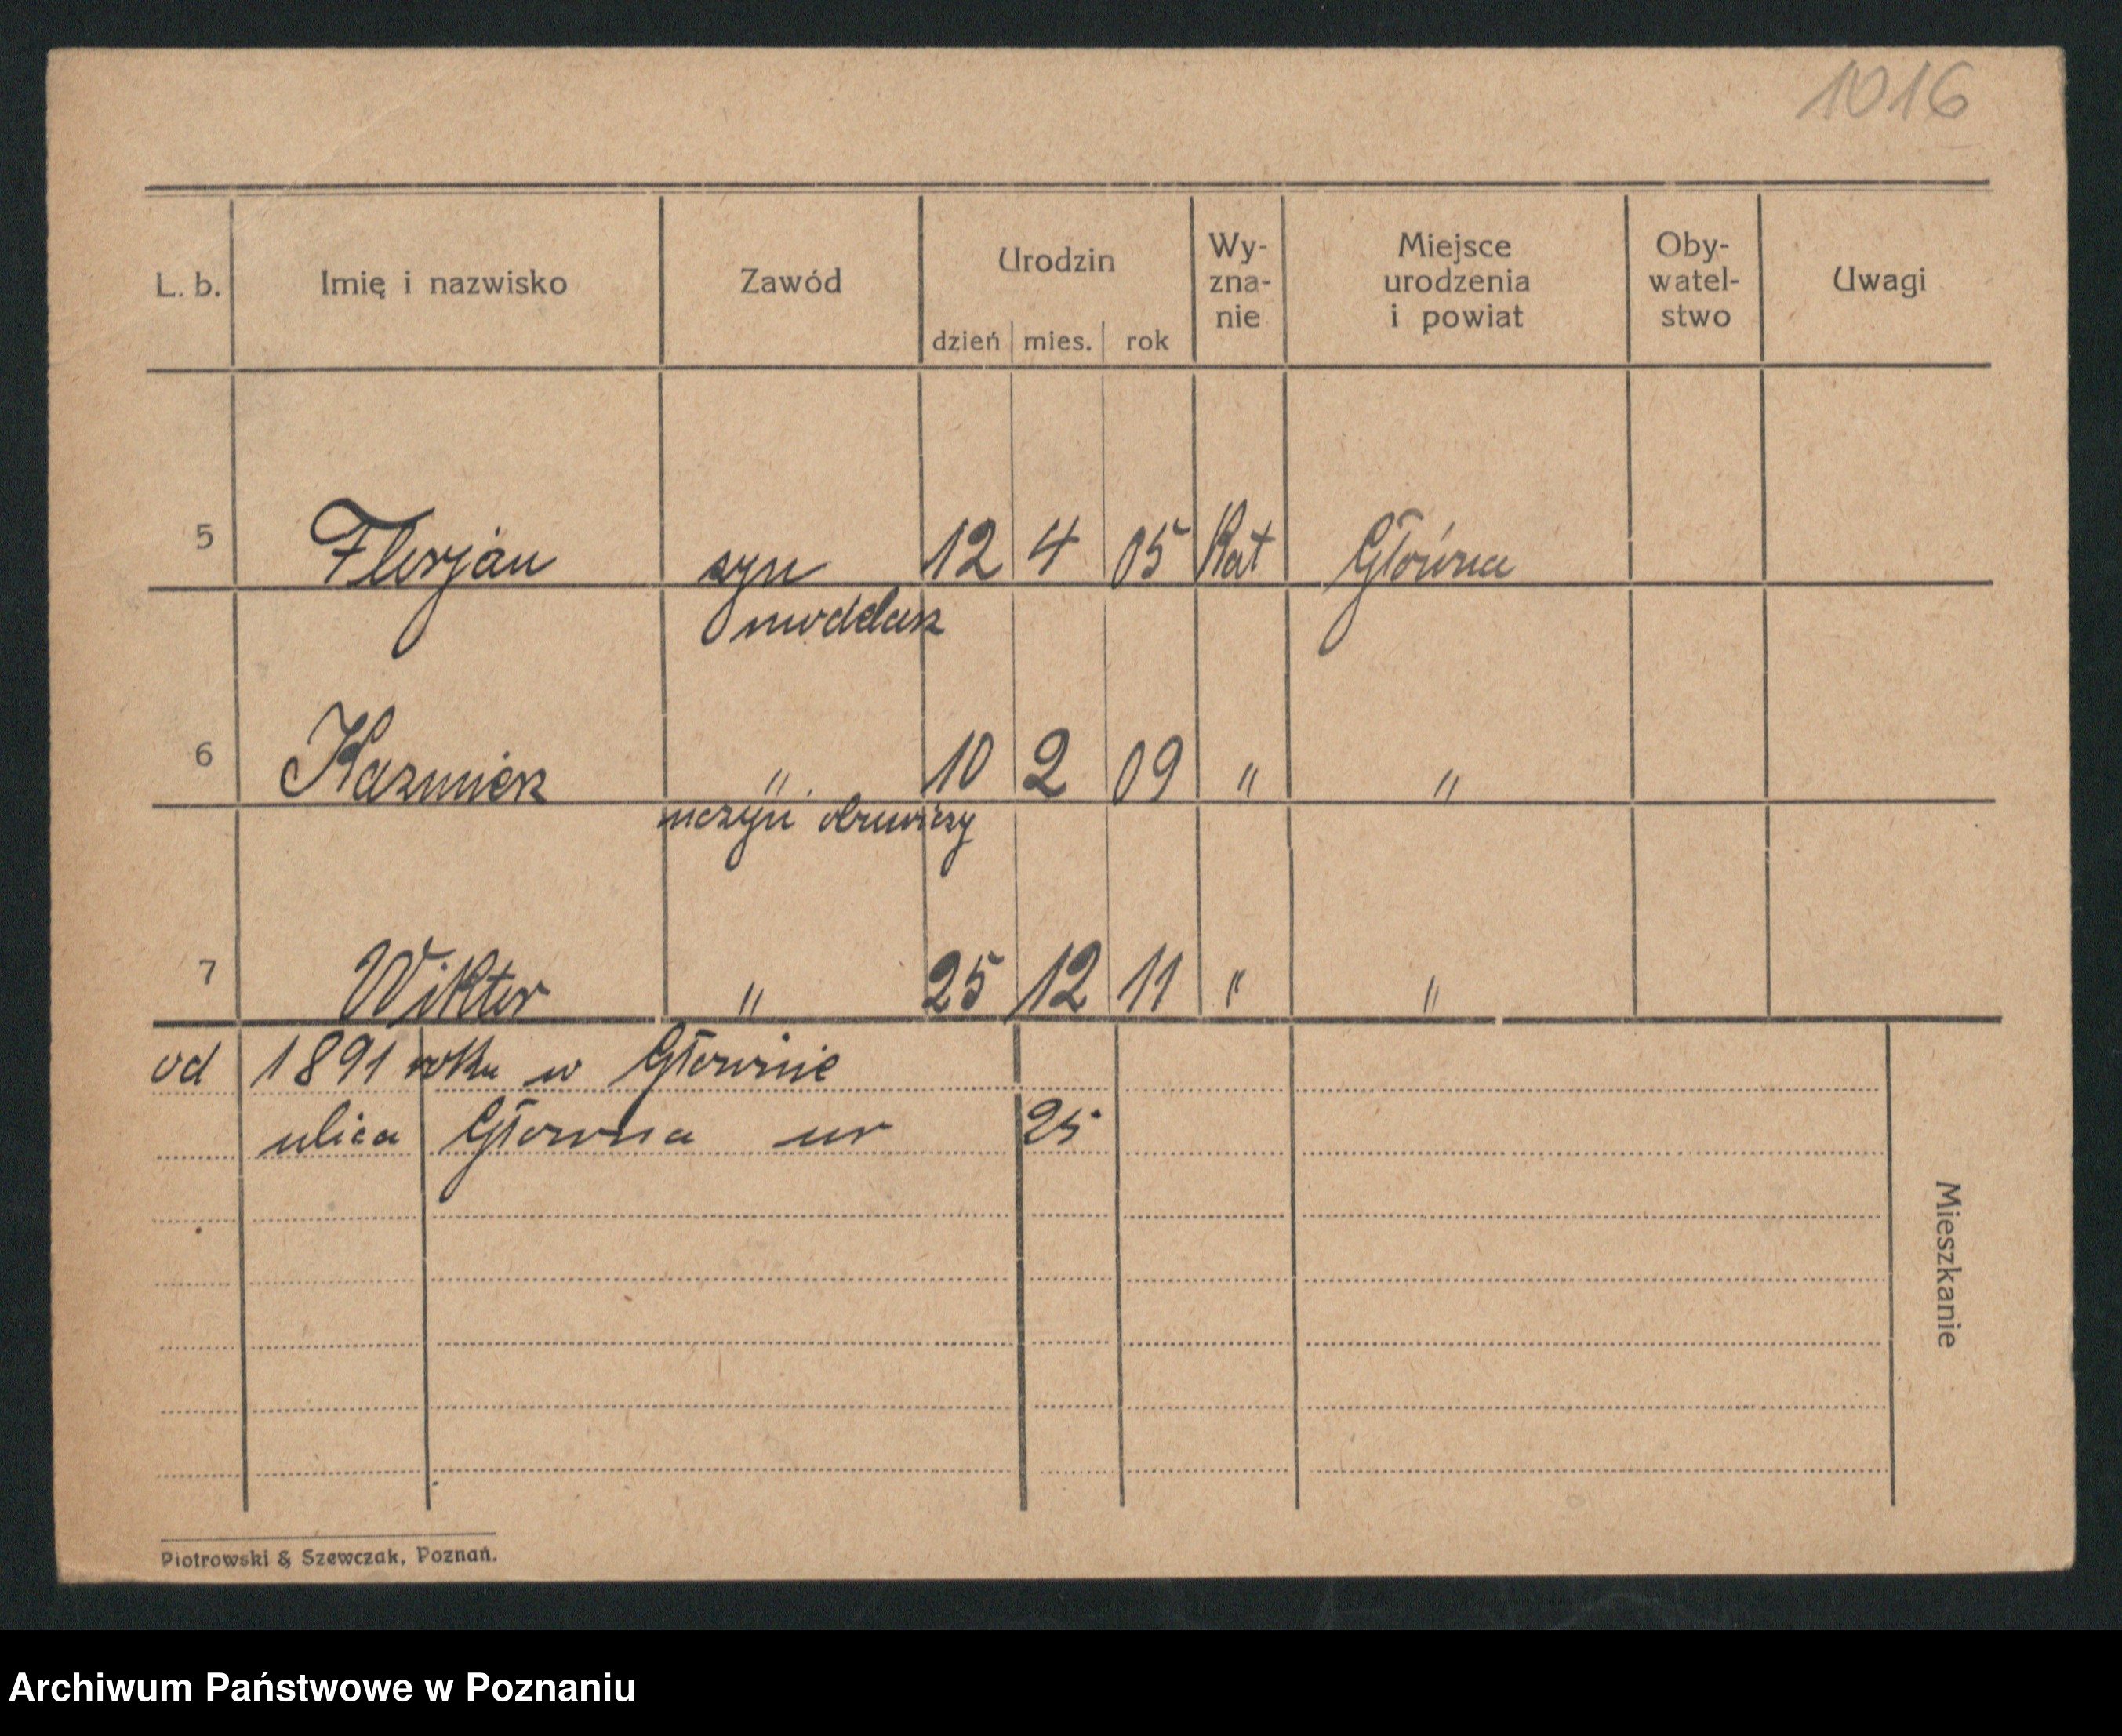 1016
L. b. Imię i nazwisko Zawód Urodzin dzień mies. rok Wy-zna-nie Miejsce urodzenia i powiat Oby-watel-stwo Uwagi
5 Florjan syn 12 4 05 Kat Główna
6 Kazmierz " 10 2 09 " "
uczyń
7 Wiktor " 25 12 11 " "
od 1891 roku w Głownie
ulica Głowna nr 25
Mieszkanie
Piotrowski & Szewczak, Poznań.
Archiwum Państwowe w Poznaniu